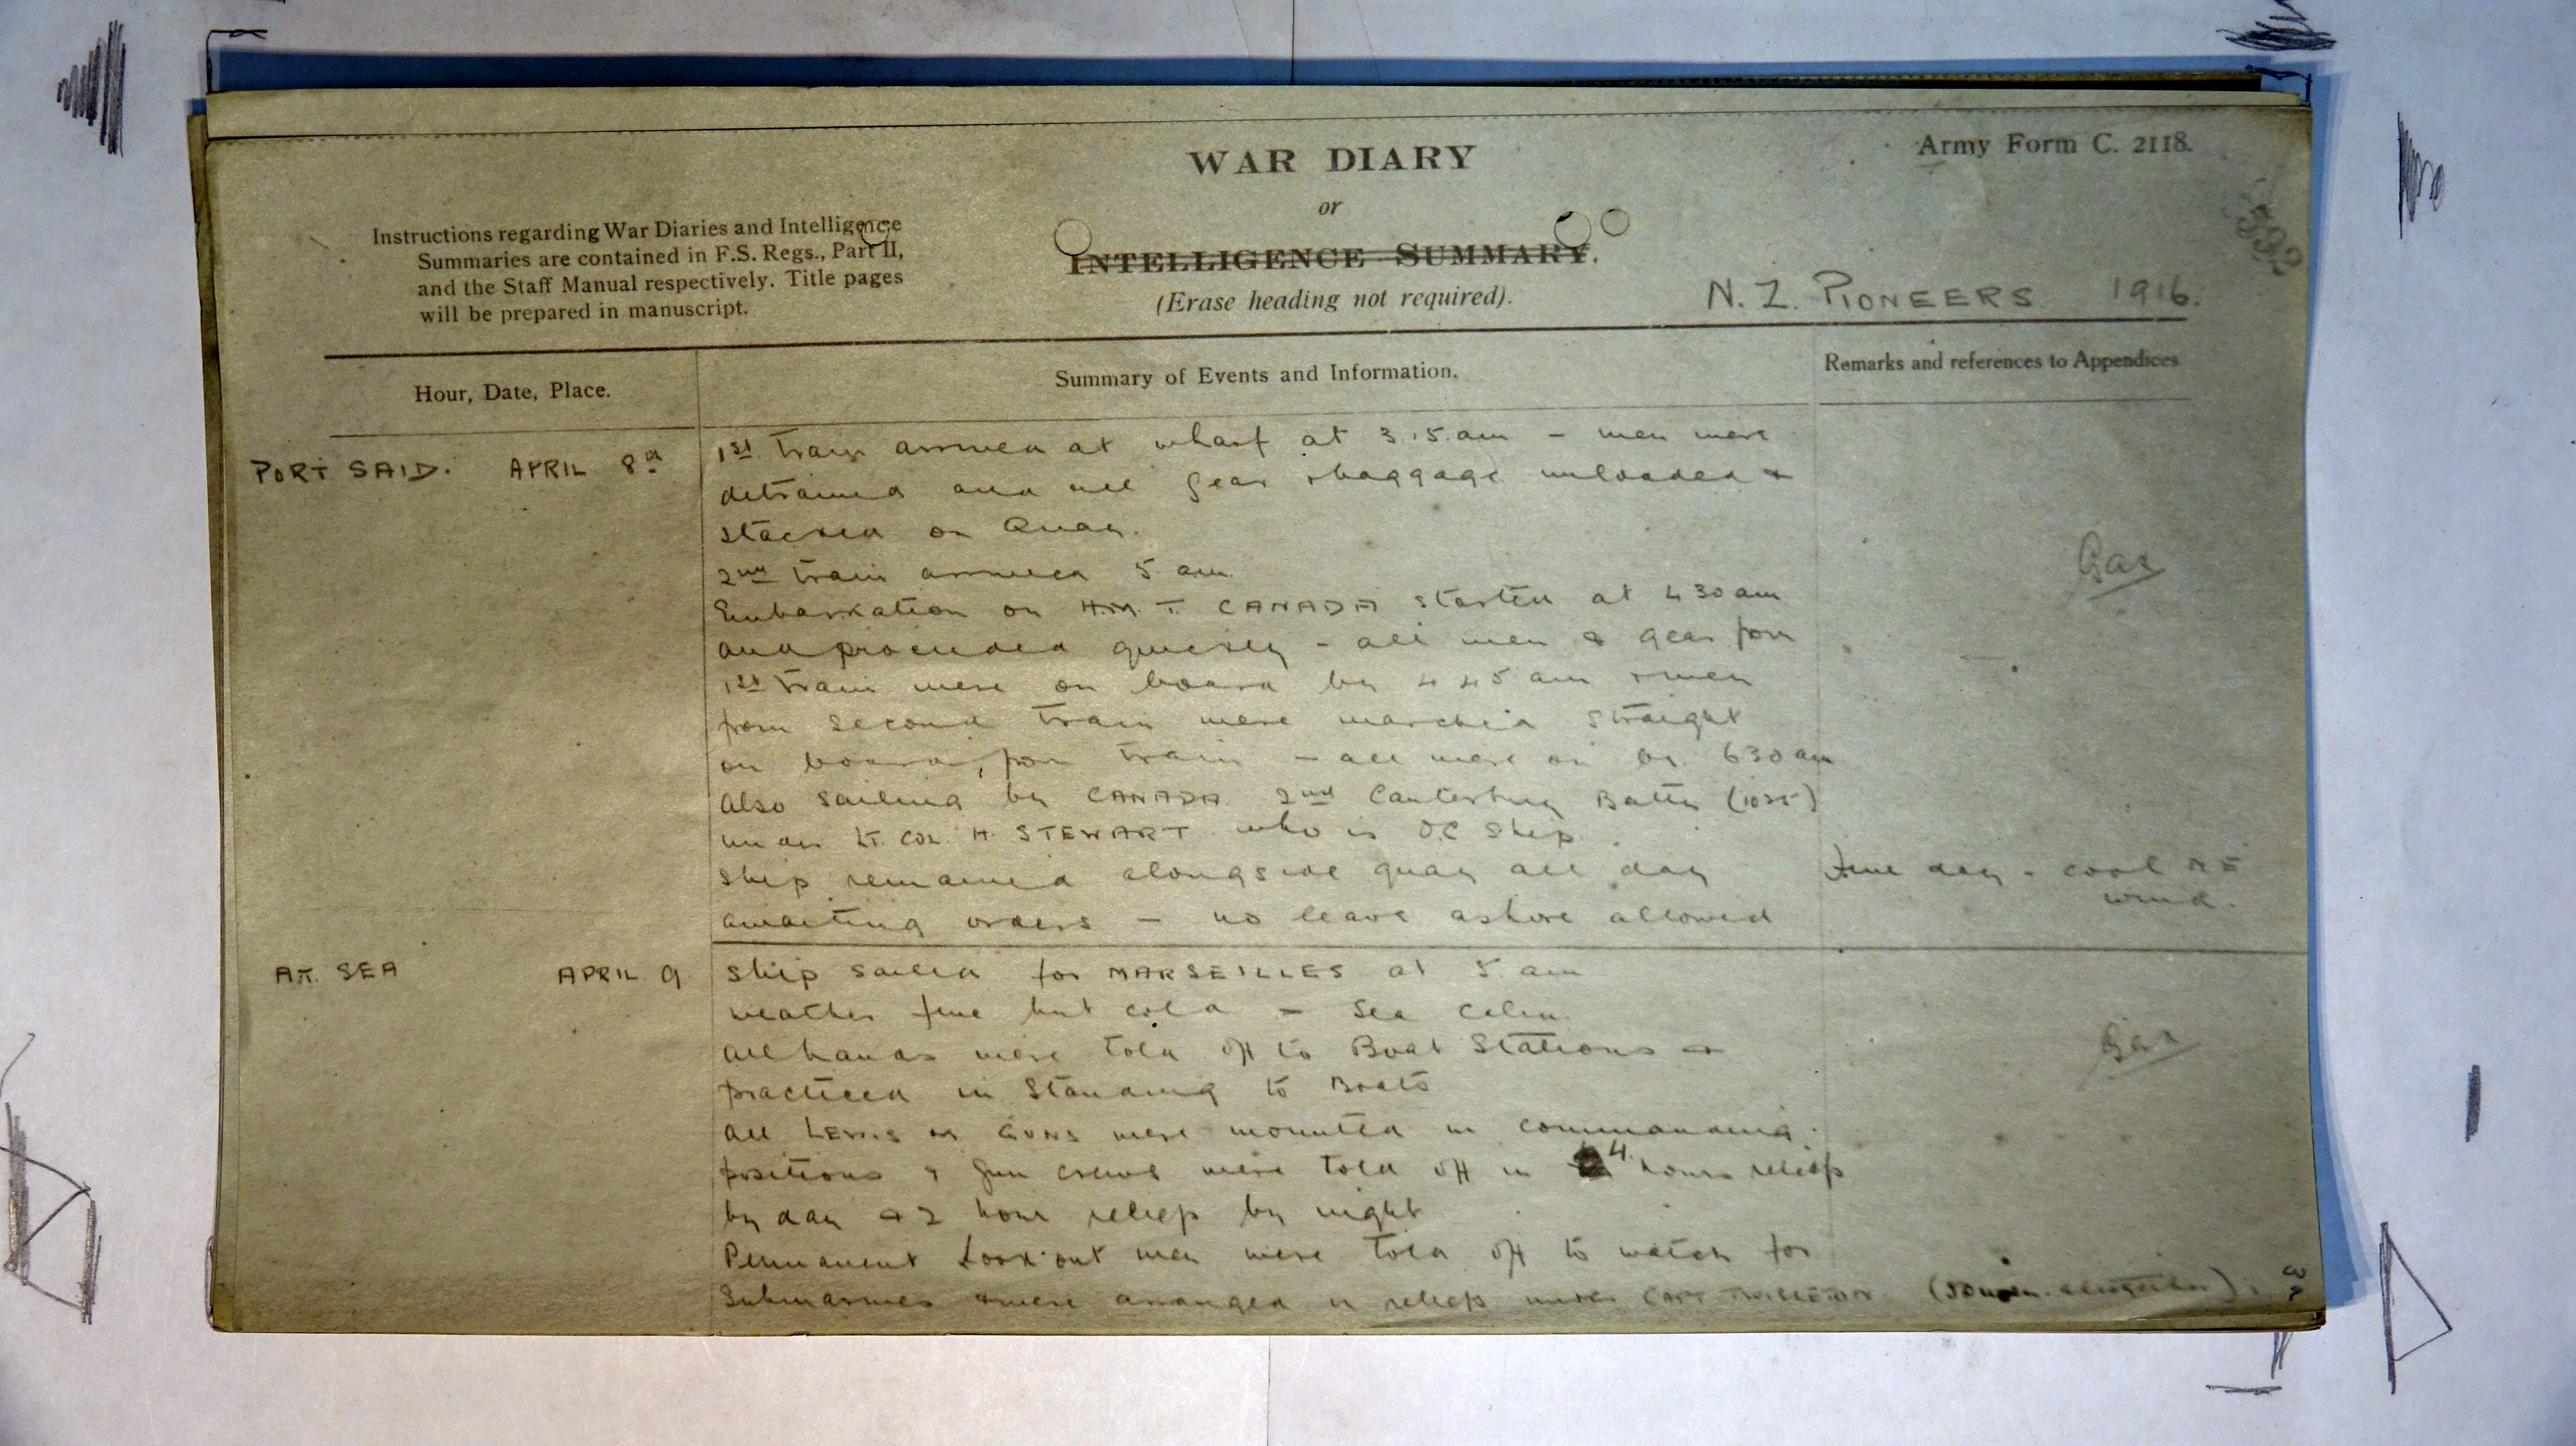 Army Form C. 2118.
WAR DIARY
or
INTELLIGENCE SUMMARY.
(Erase heading not required).
Instructions regarding War Diaries and Intelligence
Summaries are contained in F.S. Regs., Part II,
and the Staff Manual respectively. Title pages
will be prepared in manuscript.
N. Z. PIONEERS 1916.
Hour, Date, Place.
Summary of Events and Information.
Remarks and references to Appendices
PORT SAID. APRIL 8th
1st train arrived at wharf at 3.15. am - men were
detrained and all gear & baggage unloaded &
stacked on Quay.
2nd train arrived 5 am.
Embarkation on H.M.T. CANADA started at 430 am
and proceeded quickly - all men & gear from
1st train were on board by 445 am & men
from second train were marched straight
on board, from train - all were on by 630 am
Also sailing by CANADA 2nd Canterbury Battn (1025)
under LT. COL. H. STEWART who is O.C ship.
Ship remained alongside quay all day
awaiting orders - no leave ashore allowed
Fine day - cool NE
wind.
AT. SEA APRIL 9
Ship sailed for MARSEILLES at 5. am
weather fine but cold - Sea Calm.
All hands were told off to Boat Stations &
practiced in Standing to Boats
All LEWIS M GUNS were mounted in commanding
positions & gun crews were told off in 4 hours reliefs
by day & 2 hour reliefs by night
Permanent Look-out men were told off to watch for
Submarines & were arranged in reliefs under CAPT (50 men altogether).